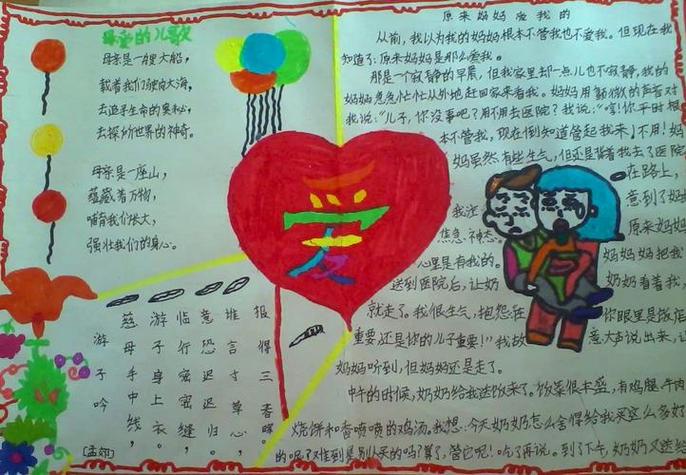 最爱的儿歌
母亲是一艘大船，
载着我们驶向大海，
去追寻生命的奥秘，
去探所世界的神奇。
母亲是一座山，
蕴藏着万物，
哺育我们长大，
强壮我们的身心。
爱
游子吟
[孟郊]
慈母手中线，
游子身上衣。
临行密密缝，
意恐迟迟归。
谁言寸草心，
报得三春晖
原来妈妈爱我的
从前，我以为我的妈妈根本不管我也不爱我。但现在我
知道了：原来妈妈是那么爱我。
那是一个寂静的早晨，但我家里却一点儿也不寂静，我的
妈妈急急忙忙从外地赶回家来看我。妈妈用颤微的声音对
我说：“儿子，你没事吧？用不用去医院？我说：“哼！你平时根
本不管我，现在倒知道管起我来！不用！妈
妈虽然有些生气，但还是背着我去了医院
在路上，
我注意到了妈
焦急神态。原来妈妈
心里是有我的。妈妈把我
送到医院后，让奶奶看着我，
就走了。我很生气，抱怨
你眼里是饭店
重要还是你的儿子重要！”我故意大声说出来，让
妈妈听到，但妈妈还是走了。
中午的时候，奶奶给我送饭来了。饭菜很丰盛，有鸡腿、牛肉
烧饼和香喷喷的鸡汤。我想：今天奶奶怎么舍得给我买这么多好
的呢？难到是别人买的吗？算了，管它呢！吃了再说。到了下午，奶奶又送给